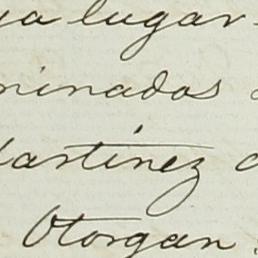 ya lugar
minados
Martinez
Otorgan